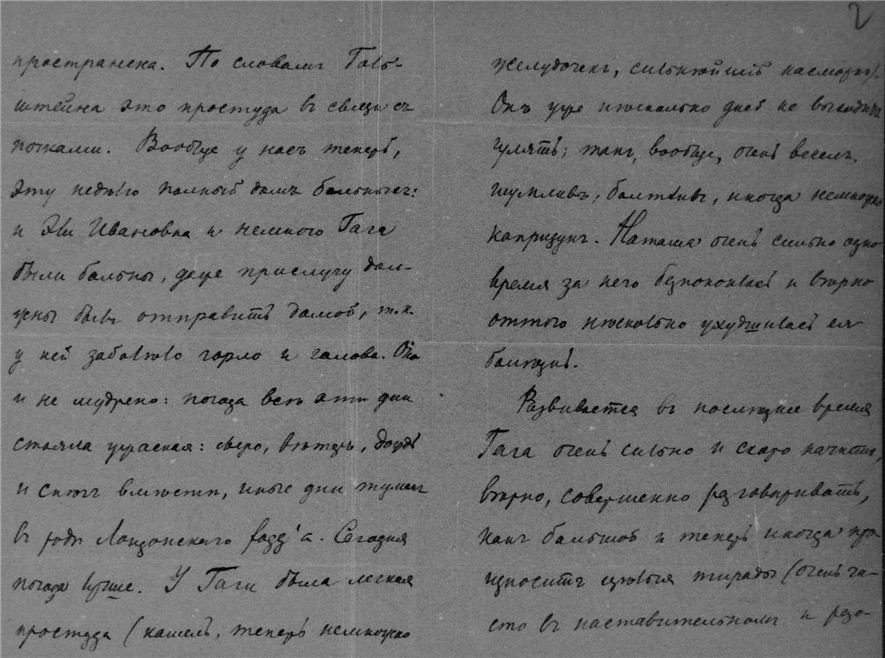 2
пространена. По словамъ Голь-
штейна это простуда въ связи съ
почками. Вообще у насъ теперь,
эту недѣлю полный домъ больныхъ:
и Эли Ивановна и немного Гага
были больны, даже прислугу дол-
жны были отправить домой, т.к.
у ней заболѣло горло и голова. Оно
и не мудрено: погода всѣ эти дни
стояла ужасная: сѣро, вѣтеръ, дождь
и снѣгъ вмѣстѣ, иные дни туманъ
въ родѣ Лондонскаго fogg'а. Сегодня
погода лучше. У Гаги была легкая
простуда (кашель, теперь немножко
желудочекъ, сильнѣйшій насморкъ).
Онъ уже нѣсколько дней не выходитъ
гулять; такъ, вообще, очень веселъ,
шумливъ, болтливъ, иногда немножко
капризунъ. Наташа очень сильно одно
время за него безпокоилась и вѣрно
оттого нѣсколько ухудшилась ея
болѣзнь.
Развивается въ послѣднее время
Гага очень сильно и скоро начнетъ,
вѣрно, совершенно разговаривать,
какъ большой и теперь иногда про-
износитъ цѣлыя тирады (очень ча-
сто въ наставительномъ и резо-